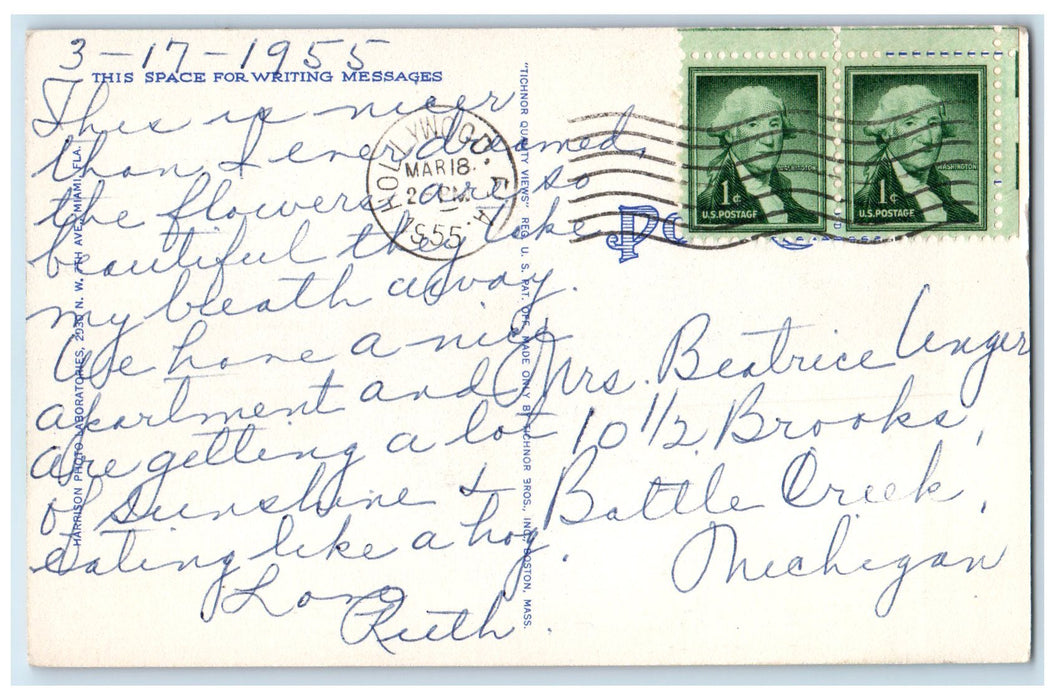 3-17-1955
THIS SPACE FOR WRITING MESSAGES
This is nicer
than I ever dreamed,
the flowers are so
beautiful they take
my breath away.
We have a nice
apartment and
are getting a lot
of sunshine &
eating like a hog.
Love
Ruth.
HARRISON PHOTO LABORATORIES, 2930 N. W. 7TH AVE., MIAMI, FLA.
"TICHNOR QUALITY VIEWS" REG. U. S. PAT. OFF. MADE ONLY BY TICHNOR BROS., INC., BOSTON, MASS.
HOLLYWOOD, FLA.
MAR 18
2 PM
1955
1¢
U.S. POSTAGE
WASHINGTON
1¢
U.S. POSTAGE
WASHINGTON
PO
Mrs. Beatrice Unger
10 1/2 Brooks,
Battle Creek,
Michigan